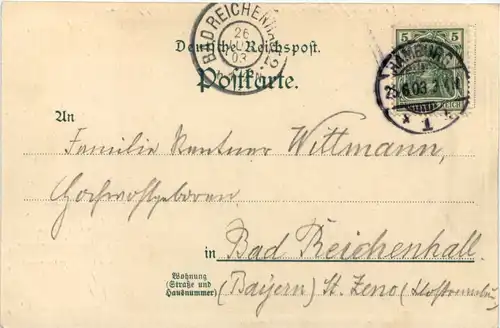 BAD REICHENHALL 2
26
JUN
03
Deutsche Reichspost.
Postkarte.
5 5
HAMBURG
REICH
* 1 *
An
Familie Rentner Wittmann,
Hochwohlgeboren
in Bad Reichenhall
Wohnung
(Straße und
Hausnummer)
(Bayern) St. Zeno